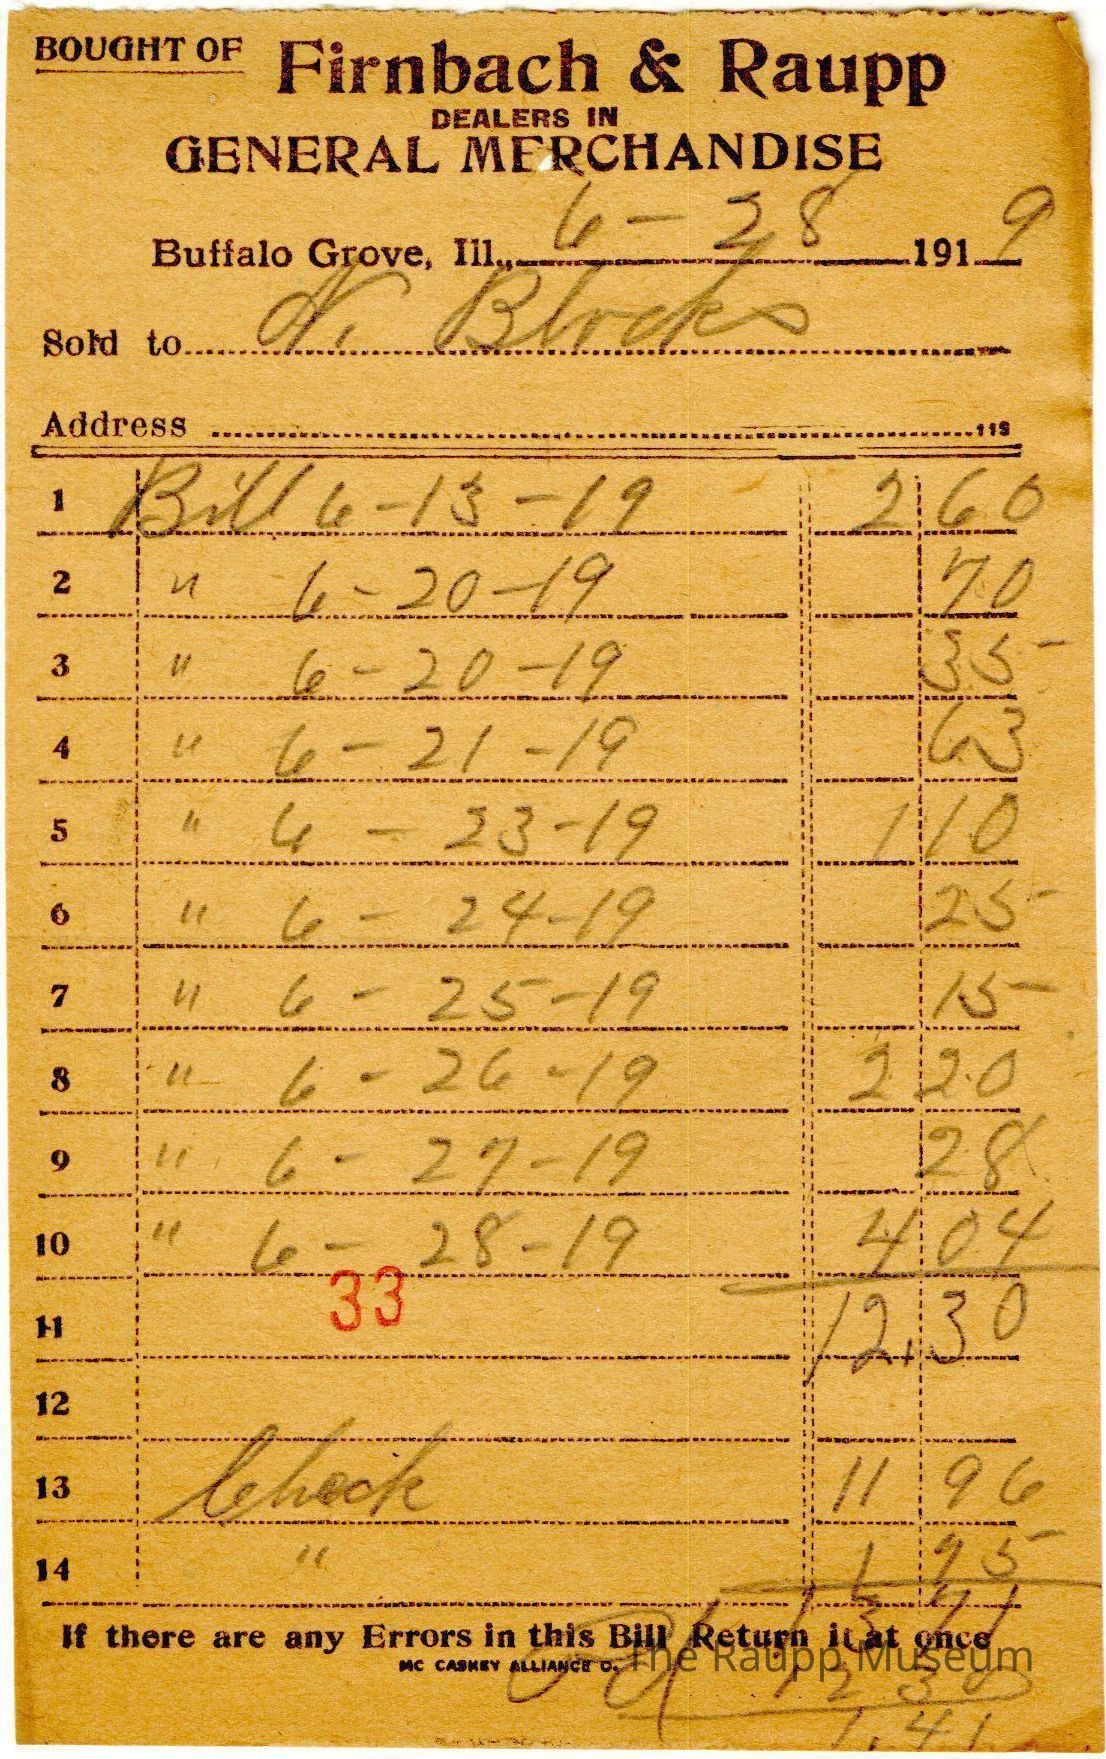 BOUGHT OF Firnbach & Raupp
DEALERS IN
GENERAL MERCHANDISE
Buffalo Grove, Ill., 6 - 28 1919
Sold to N. Blocks
Address
113
1 Bill 6-13-19 2 60
2 " 6-20-19 70
3 " 6-20-19 35
4 " 6-21-19 63
5 " 6-23-19 1 10
6 " 6-24-19 25
7 " 6-25-19 15
8 " 6-26-19 2 20
9 " 6-27-19 28
10 " 6-28-19 4 04
33
11 12.30
12
13 Check 11 96
14 " 1 75
13 71
If there are any Errors in this Bill Return it at once
MC CASKEY ALLIANCE O.
The Raupp Museum
12 30
1.41